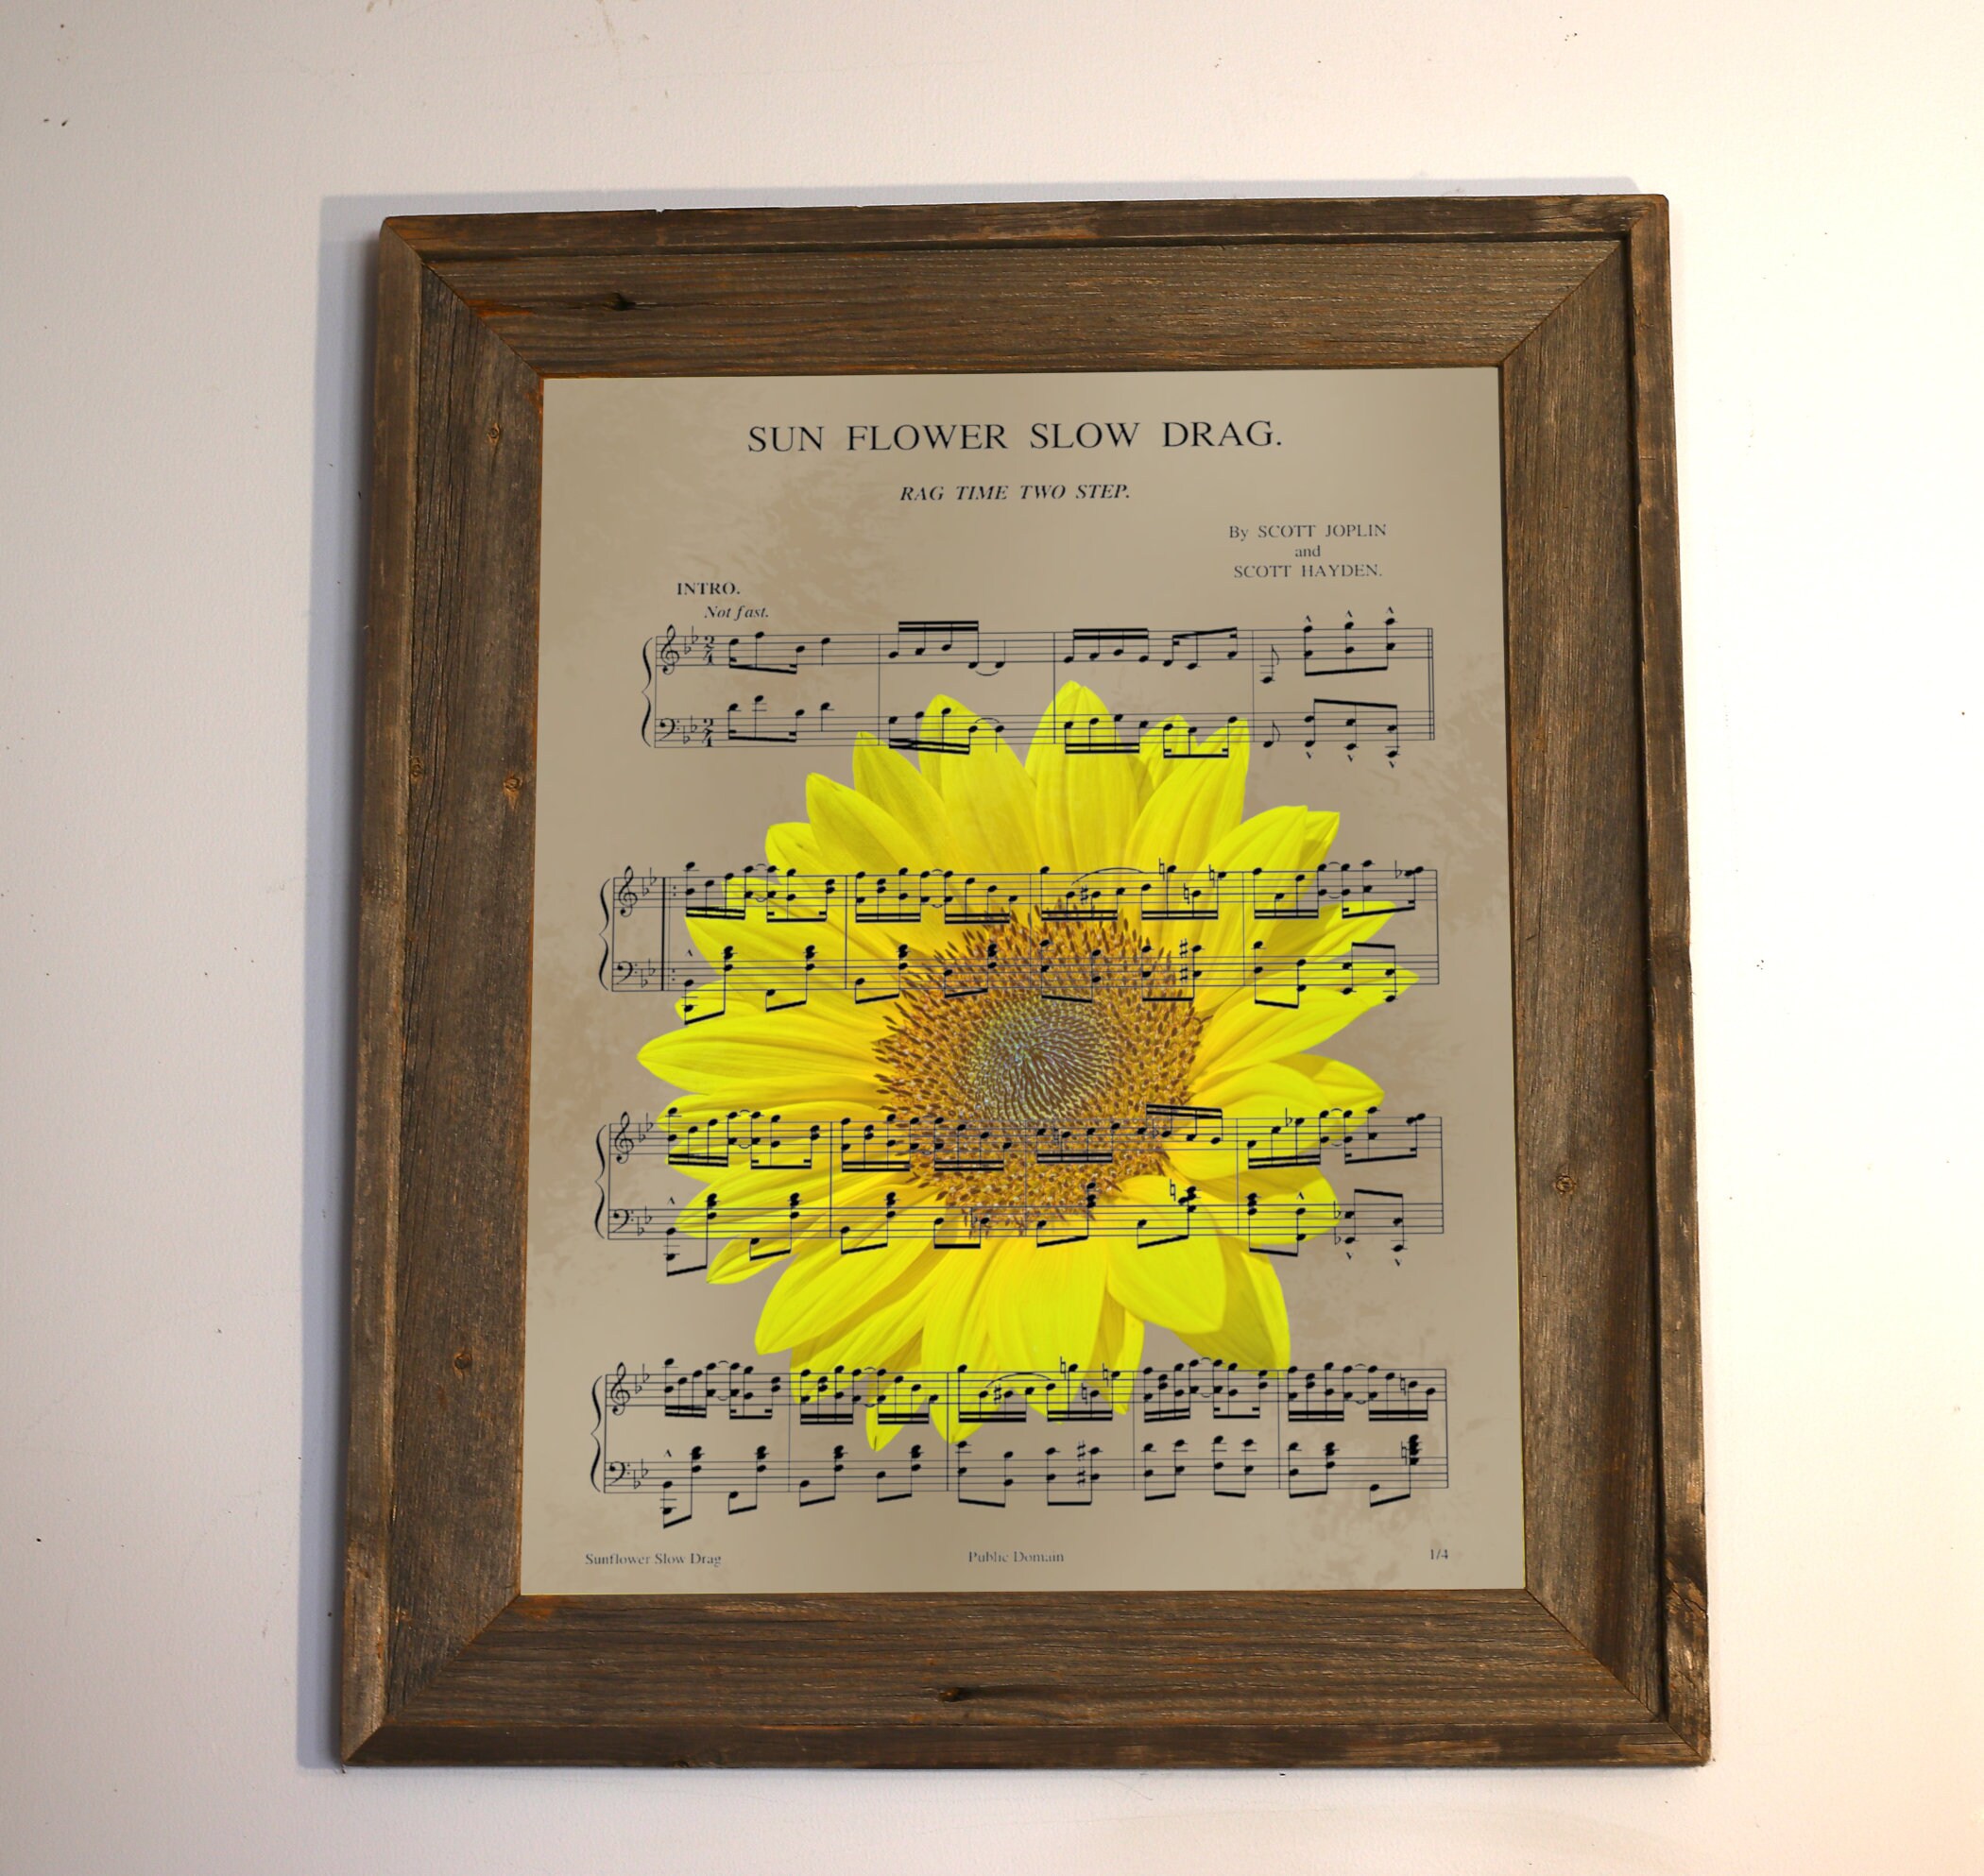 SUN FLOWER SLOW DRAG.
RAG TIME TWO STEP.
By SCOTT JOPLIN
and
SCOTT HAYDEN.
INTRO.
Not fast.
Sunflower Slow Drag
Public Domain
1/4